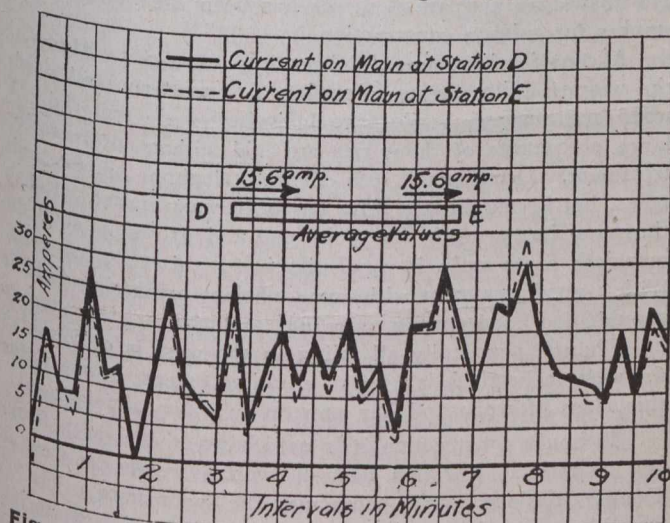 Current on Main at Station D
Current on Main at Station E
15.6 amp. 15.6 amp.
D E
Average Values
Amperes
30
25
20
15
10
5
0
1 2 3 4 5 6 7 8 9 10
Intervals in Minutes